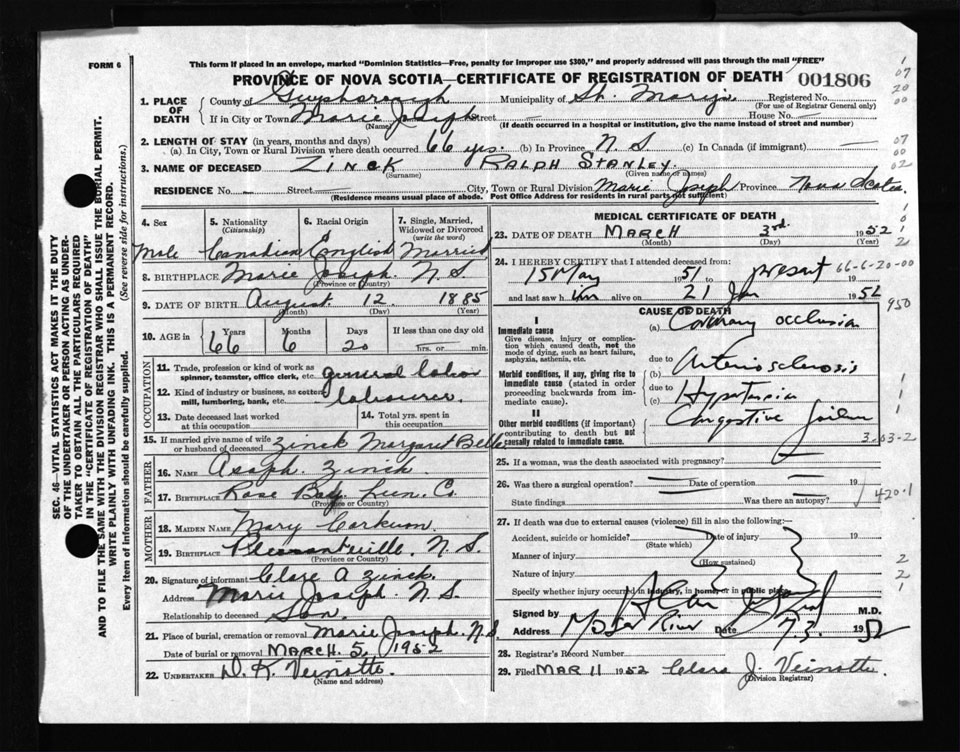 FORM 6
This form if placed in an envelope, marked "Dominion Statistics—Free, penalty for improper use $300," and properly addressed will pass through the mail "FREE"
PROVINCE OF NOVA SCOTIA—CERTIFICATE OF REGISTRATION OF DEATH 001806
SEC. 46—VITAL STATISTICS ACT MAKES IT THE DUTY
OF THE UNDERTAKER OR PERSON ACTING AS UNDER-
TAKER TO OBTAIN ALL THE PARTICULARS REQUIRED
IN THE "CERTIFICATE OF REGISTRATION OF DEATH"
AND TO FILE THE SAME WITH THE DIVISION REGISTRAR WHO SHALL ISSUE THE BURIAL PERMIT.
WRITE PLAINLY WITH UNFADING INK. THIS IS A PERMANENT RECORD.
Every item of information should be carefully supplied. (See reverse side for instructions.)
1. PLACE OF DEATH County of Guysborough Municipality of St. Mary's Registered No.
(For use of Registrar General only)
If in City or Town Marie Joseph Street House No.
(Name) (If death occurred in a hospital or institution, give the name instead of street and number)
2. LENGTH OF STAY (in years, months and days)
(a) In City, Town or Rural Division where death occurred 66 yrs. (b) In Province N. S. (c) In Canada (if immigrant)
3. NAME OF DECEASED ZINCK RALPH STANLEY.
(Surname) (Given name or names)
RESIDENCE No. Street City, Town or Rural Division Marie Joseph Province Nova Scotia
(Residence means usual place of abode. Post Office Address for residents in rural parts not sufficient)
4. Sex 5. Nationality (Citizenship) 6. Racial Origin 7. Single, Married, Widowed or Divorced (write the word)
Male Canadian English Married
8. BIRTHPLACE Marie Joseph. N. S.
(Province or Country)
9. DATE OF BIRTH August 12 1885
(Month) (Day) (Year)
10. AGE in Years Months Days If less than one day
66 6 20 hrs. or min.
OCCUPATION
11. Trade, profession or kind of work as spinner, teamster, office clerk, etc. general labor
12. Kind of industry or business, as cotton mill, lumbering, bank, etc. labourer.
13. Date deceased last worked at this occupation 14. Total yrs. spent in this occupation
15. If married give name of wife or husband of deceased Zinck Margaret Belle
FATHER
16. NAME Asaph. Zinck.
17. BIRTHPLACE Rose Bay. Lun. Co.
(Province or Country)
MOTHER
18. MAIDEN NAME Mary Corkum.
19. BIRTHPLACE Pleasantville. N. S.
(Province or Country)
20. Signature of informant Clare A Zinck.
Address Marie Joseph. N S.
Relationship to deceased Son.
21. Place of burial, cremation or removal Marie Joseph. N S
Date of burial or removal MARCH 5, 1952
22. UNDERTAKER D. K. Veinotte.
(Name and address)
MEDICAL CERTIFICATE OF DEATH
23. DATE OF DEATH MARCH 3rd. 1952
(Month) (Day) (Year)
24. I HEREBY CERTIFY that I attended deceased from:
15 May 1951 to present 19 66-6-20-00
and last saw him alive on 21 Jan 1952
950
CAUSE OF DEATH
I
Immediate cause
Give disease, injury or complication which caused death, not the mode of dying, such as heart failure, asphyxia, asthenia, etc.
(a) Coronary occlusion
due to
Morbid conditions, if any, giving rise to immediate cause (stated in order proceeding backwards from immediate cause).
(b) Arteriosclerosis
due to
(c) Hypertension
II
Other morbid conditions (if important) contributing to death but not causally related to immediate cause.
Congestive failure
3-03-2
25. If a woman, was the death associated with pregnancy?
26. Was there a surgical operation? Date of operation 19
State findings Was there an autopsy?
420.1
27. If death was due to external causes (violence) fill in also the following:—
Accident, suicide or homicide? Date of injury 19
(State which)
Manner of injury
(How sustained)
Nature of injury
Specify whether injury occurred in industry, in home, or in public place
Signed by M.D.
Address Moser River Date 7 3. 1952
28. Registrar's Record Number
29. Filed MAR 11 1952 Clara J. Veinotte
(Division Registrar)